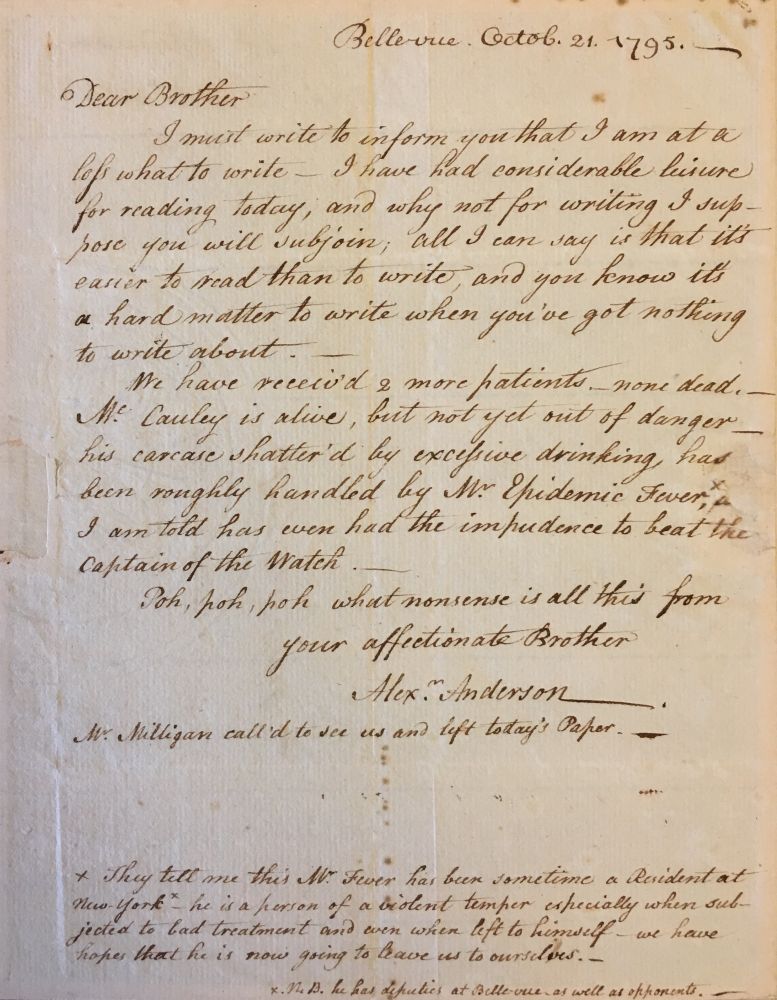 Belle-vue. Octob. 21. 1795. —
Dear Brother
I must write to inform you that I am at a
loss what to write — I have had considerable leisure
for reading today, and why not for writing I sup-
pose you will subjoin; all I can say is that it's
easier to read than to write, and you know it's
a hard matter to write when you've got nothing
to write about. —
We have receiv'd 2 more patients. — none dead. —
Mc. Cauley is alive, but not yet out of danger —
his carcase shatter'd by excessive drinking, has
been roughly handled by Mr. Epidemic Fever, x
I am told has even had the impudence to beat the
Captain of the Watch. —
Poh, poh, poh what nonsense is all this from
your affectionate Brother
Alexr. Anderson —.
Mr. Milligan call'd to see us and left today's Paper. —
x They tell me this Mr. Fever has been sometime a Resident at
New-York x — he is a person of a violent temper especially when sub-
jected to bad treatment and even when left to himself — we have
hopes that he is now going to leave us to ourselves. —
x. N.B. he has deputies at Belle-vue as well as opponents. —